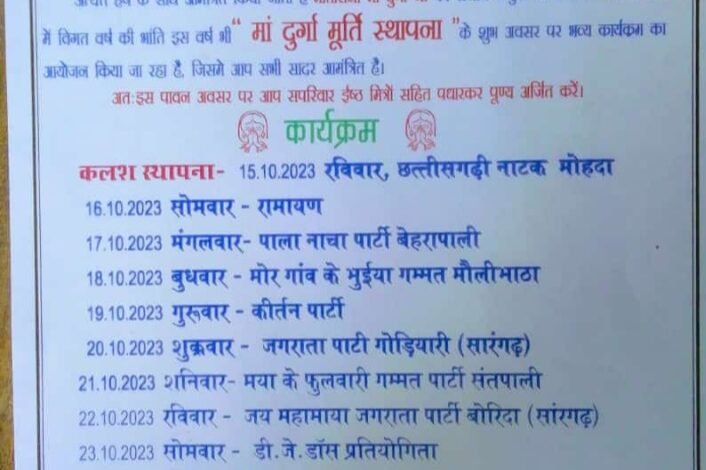 में विगत वर्ष की भांति इस वर्ष भी “ मां दुर्गा मूर्ति स्थापना ” के शुभ अवसर पर भव्य कार्यक्रम का
आयोजन किया जा रहा है, जिसमे आप सभी सादर आमंत्रित है।
अतःइस पावन अवसर पर आप सपरिवार ईष्ठ मित्रों सहित पधारकर पूण्य अर्जित करें।
कार्यक्रम
कलश स्थापना- 15.10.2023 रविवार, छत्तीसगढ़ी नाटक मोहदा
16.10.2023 सोमवार - रामायण
17.10.2023 मंगलवार- पाला नाचा पार्टी बेहरापाली
18.10.2023 बुधवार - मोर गांव के भुईया गम्मत मौलीभाठा
19.10.2023 गुरूवार - कीर्तन पार्टी
20.10.2023 शुक्रवार - जगराता पाटी गोड़ियारी (सारंगढ़)
21.10.2023 शनिवार- मया के फुलवारी गम्मत पार्टी संतपाली
22.10.2023 रविवार - जय महामाया जगराता पार्टी बोरिदा (सांरगढ़)
23.10.2023 सोमवार - डी.जे.डॉस प्रतियोगिता